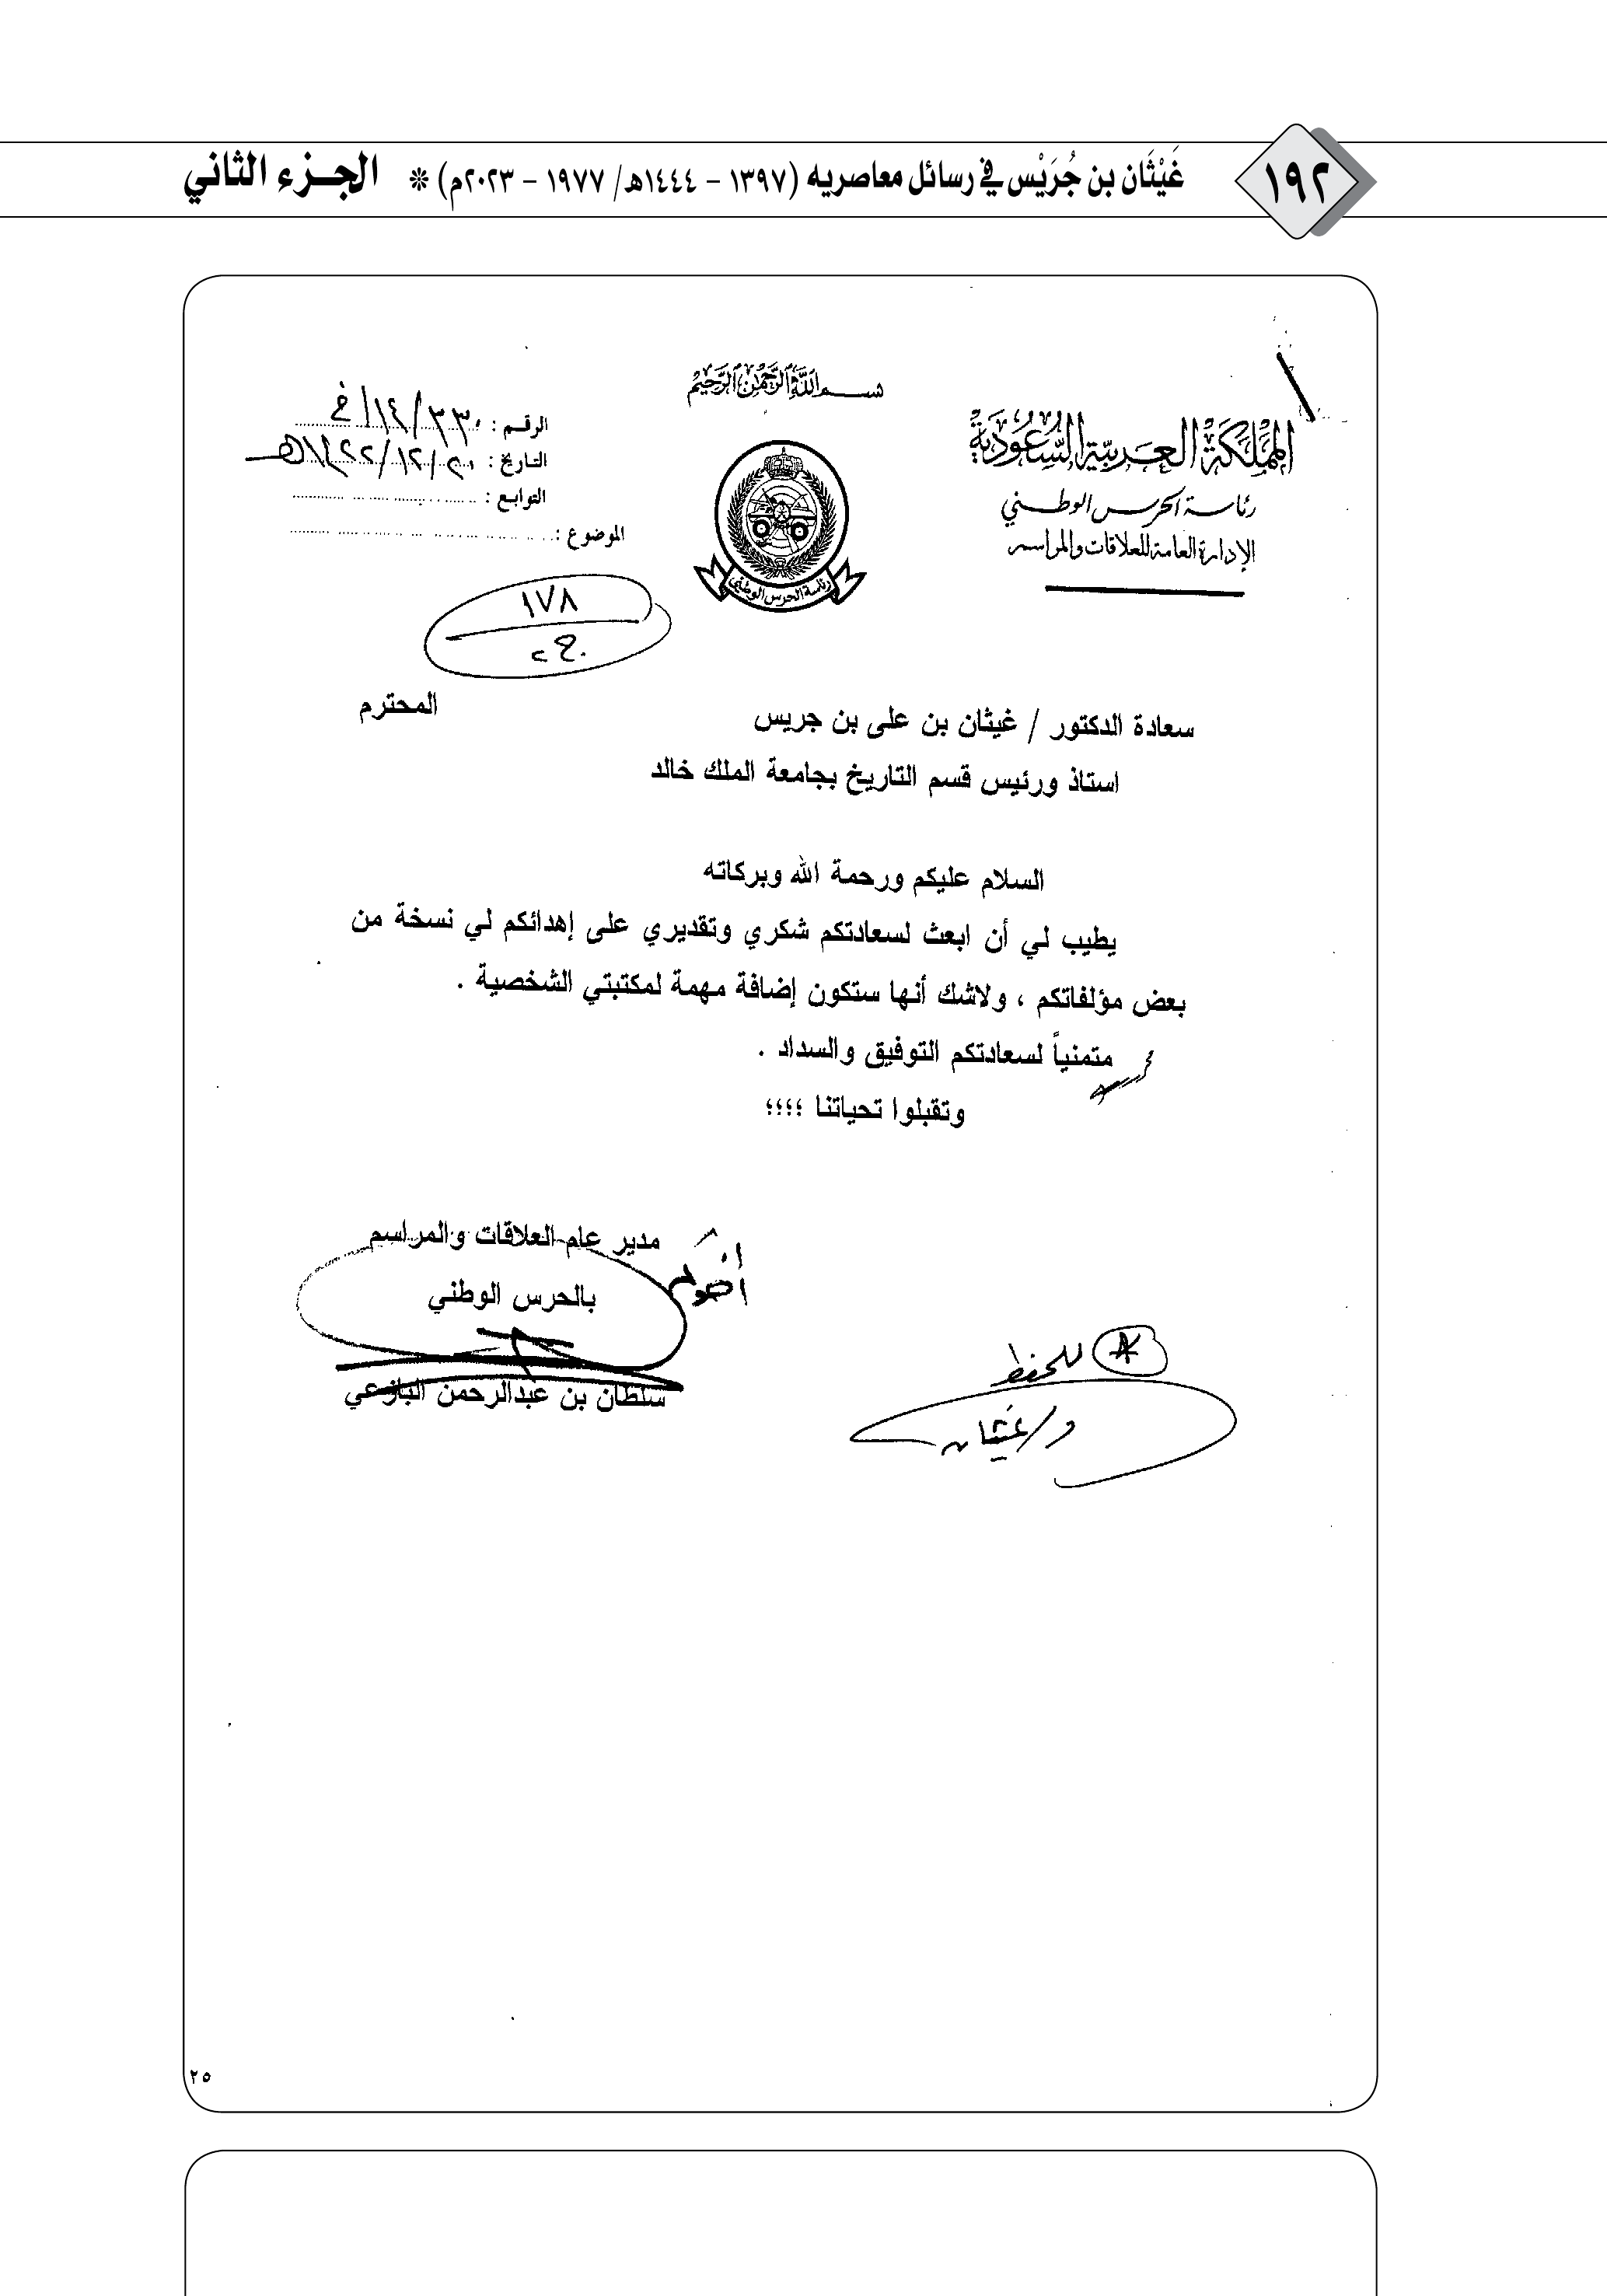 ١٩٢
غَيْثَان بن جُرَيْس في رسائل معاصريه (١٣٩٧ - ١٤٤٤هـ/ ١٩٧٧ - ٢٠٢٣م) * الجزء الثاني
بسم الله الرحمن الرحيم
المملكة العربية السعودية
رئاسة الحرس الوطني
الإدارة العامة للعلاقات والمراسم
الرقم :
التاريخ : ١٤٢٢/١٢/٢٠هـ
التوابع :
الموضوع :
رئاسة الحرس الوطني
١٧٨
سعادة الدكتور / غيثان بن على بن جريس المحترم
استاذ ورئيس قسم التاريخ بجامعة الملك خالد
السلام عليكم ورحمة الله وبركاته
يطيب لي أن ابعث لسعادتكم شكري وتقديري على إهدائكم لي نسخة من
بعض مؤلفاتكم ، ولاشك أنها ستكون إضافة مهمة لمكتبتي الشخصية .
متمنياً لسعادتكم التوفيق والسداد .
وتقبلوا تحياتنا ؛؛؛؛
مدير عام العلاقات والمراسم
بالحرس الوطني
سلطان بن عبدالرحمن البازعي
للحفظ
د/غيثان
٢٥